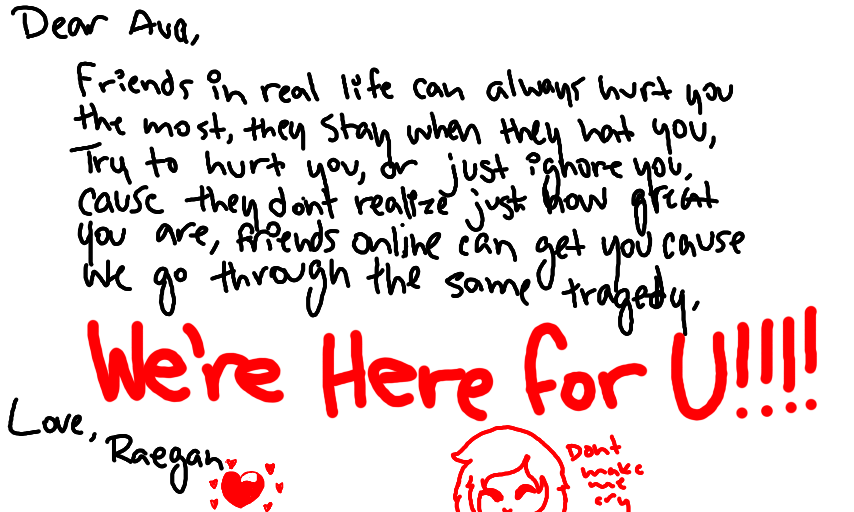 Dear Ava,
Friends in real life can always hurt you
the most, they stay when they hat you,
Try to hurt you, or just ignore you.
cause they dont realize just how great
you are, friends online can get you cause
we go through the same tragedy.
We're Here for U!!!!
Love,
Raegan
Dont
make
me
cry